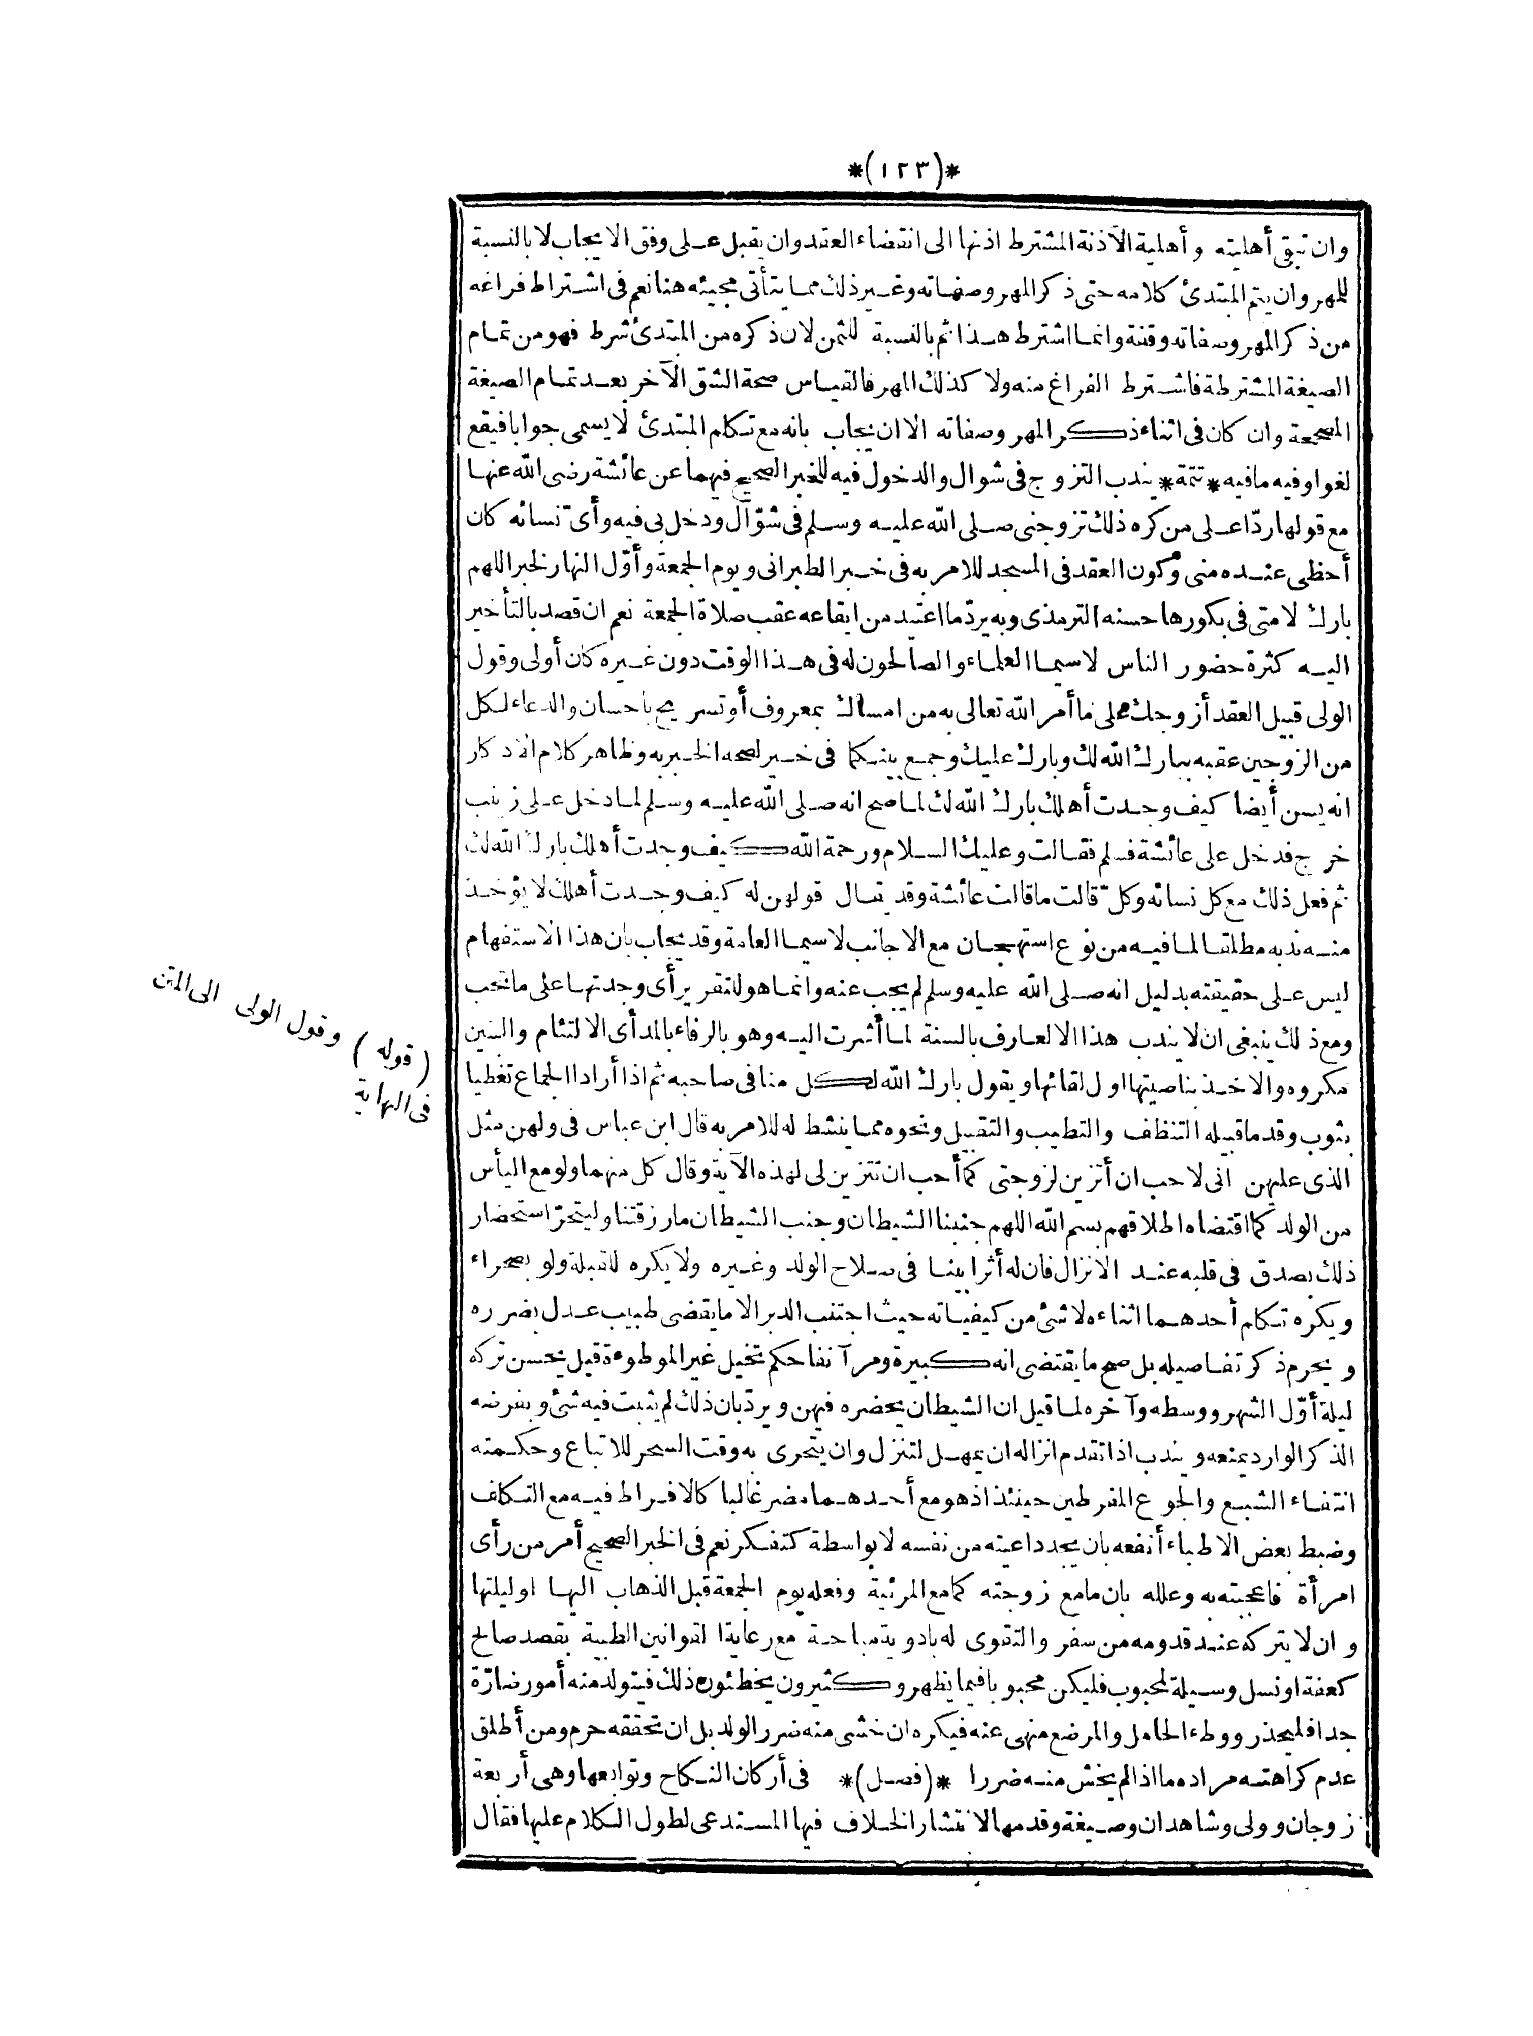 *(١٢٣)*
وان تبقى أهليته وأهلية الآذنة المشترط اذنها الى انقضاء العقد وان يقبل على وفق الايجاب لا بالنسبة
للمهر وان يتم المبتدئ كلامه حتى ذكر المهر وصفاته وغير ذلك مما يتأتى مجيئه هنا نعم فى اشتراط فراغه
من ذكر المهر وصفاته وقفة وانما اشترط هذا ثم بالنسبة للثمن لان ذكره من المبتدئ شرط فهو من تمام
الصيغة المشترطة فاشترط الفراغ منه ولا كذلك المهر فالقياس صحة الشق الآخر بعد تمام الصيغة
المصححة وان كان فى اثناء ذكر المهر وصفاته الا ان يجاب بانه مع تكلم المبتدئ لا يسمى جوابا فيقع
لغوا وفيه ما فيه *تتمة* يندب التزوج فى شوال والدخول فيه للخبر الصحيح فيهما عن عائشة رضى الله عنها
مع قولها ردّا على من كره ذلك تزوجنى صلى الله عليه وسلم فى شوّال ودخل بى فيه وأىّ نسائه كان
أحظى عنده منى وكون العقد فى المسجد للامر به فى خبر الطبرانى ويوم الجمعة وأوّل النهار لخبر اللهم
بارك لامتى فى بكورها حسنه الترمذى وبه يردّ ما اعتيد من ايقاعه عقب صلاة الجمعة نعم ان قصد بالتأخير
اليه كثرة حضور الناس لا سيما العلماء والصالحون له فى هذا الوقت دون غيره كان أولى وقول
الولى قبيل العقد أزوجك على ما أمر الله تعالى به من امساك بمعروف أو تسريح باحسان والدعاء لكل
من الزوجين عقبه ببارك الله لك وبارك عليك وجمع بينكما فى خير لصحه الخبر به وظاهر كلام الاذكار
انه يسن أيضا كيف وجدت أهلك بارك الله لك لما صح انه صلى الله عليه وسلم لما دخل على زينب
خرج فدخل على عائشة فسلم فقالت وعليك السلام ورحمة الله كيف وجدت أهلك بارك الله لك
ثم فعل ذلك مع كل نسائه وكلّ قالت ما قالت عائشة وقد يقال قولهن له كيف وجدت أهلك لا يؤخذ
منه ندبه مطلقا لما فيه من نوع استهجان مع الاجانب لا سيما العامة وقد يجاب بان هذا الاستفهام
ليس على حقيقته بدليل انه صلى الله عليه وسلم لم يجب عنه وانما هو لتقرير أى وجدتها على ما تحب
ومع ذلك ينبغى ان لا يندب هذا الا لعارف بالسنة لما أشرت اليه وهو بالرفاء بالمد أى الالتئام والبنين
مكروه والاخذ بناصيتها اول لقائها ويقول بارك الله لكل منا فى صاحبه ثم اذا أرادا الجماع تغطيا
بثوب وقدما قبيله التنظف والتطيب والتقبيل ونحوه مما ينشط له للامر به قال ابن عباس فى ولهن مثل
الذى عليهن انى لاحب ان أتزين لزوجتى كما أحب ان تتزين لى لهذه الآية وقال كل منهما ولو مع اليأس
من الولد كما اقتضاه اطلاقهم بسم الله اللهم جنبنا الشيطان وجنب الشيطان ما رزقتنا وليتحرّ استحضار
ذلك بصدق فى قلبه عند الانزال فان له أثرا بينا فى صلاح الولد وغيره ولا يكره للقبلة ولو بصحراء
ويكره تكلم أحدهما اثناءه لا شئ من كيفياته حيث اجتنب الدبر الا ما يقضى طبيب عدل بضرره
ويحرم ذكر تفاصيله بل صح ما يقتضى انه كبيرة ومر آنفا حكم تخيل غير الموطوءة قيل يحسن تركه
ليلة أوّل الشهر ووسطه وآخره لما قيل ان الشيطان يحضره فيهن ويردّ بان ذلك لم يثبت فيه شئ وبفرضه
الذكر الوارد يمنعه ويندب اذا تقدم انزاله ان يمهل لتنزل وان يتحرى به وقت السحر للاتباع وحكمته
انتفاء الشبع والجوع المفرطين حينئذ اذ هو مع أحدهما مضر غالبا كالافراط فيه مع التكلف
وضبط بعض الاطباء أنفعه بان يجد داعيته من نفسه لا بواسطة كتفكر نعم فى الخبر الصحيح أمر من رأى
امرأة فاعجبته به وعلله بان ما مع زوجته كما مع المرئية وفعله يوم الجمعة قبل الذهاب اليها او ليلتها
وان لا يتركه عند قدومه من سفر والتقوى له بادوية مباحة مع رعاية القوانين الطبية بقصد صالح
كعفة او نسل وسيلة لمحبوب فليكن محبوبا فيما يظهر وكثيرون يخطئون ذلك فيتولد منه أمور ضارّة
جدا فليحذر ووطء الحامل والمرضع منهى عنه فيكره ان خشى منه ضرر الولد بل ان تحققه حرم ومن أطلق
عدم كراهته مراده ما اذا لم يخش منه ضررا *(فصل)* فى أركان النكاح وتوابعها وهى أربعة
زوجان وولى وشاهدان وصيغة وقدمها لانتشار الخلاف فيها المستدعى لطول الكلام عليها فقال
(قوله) وقول الولى الى المتن
فى النهاية